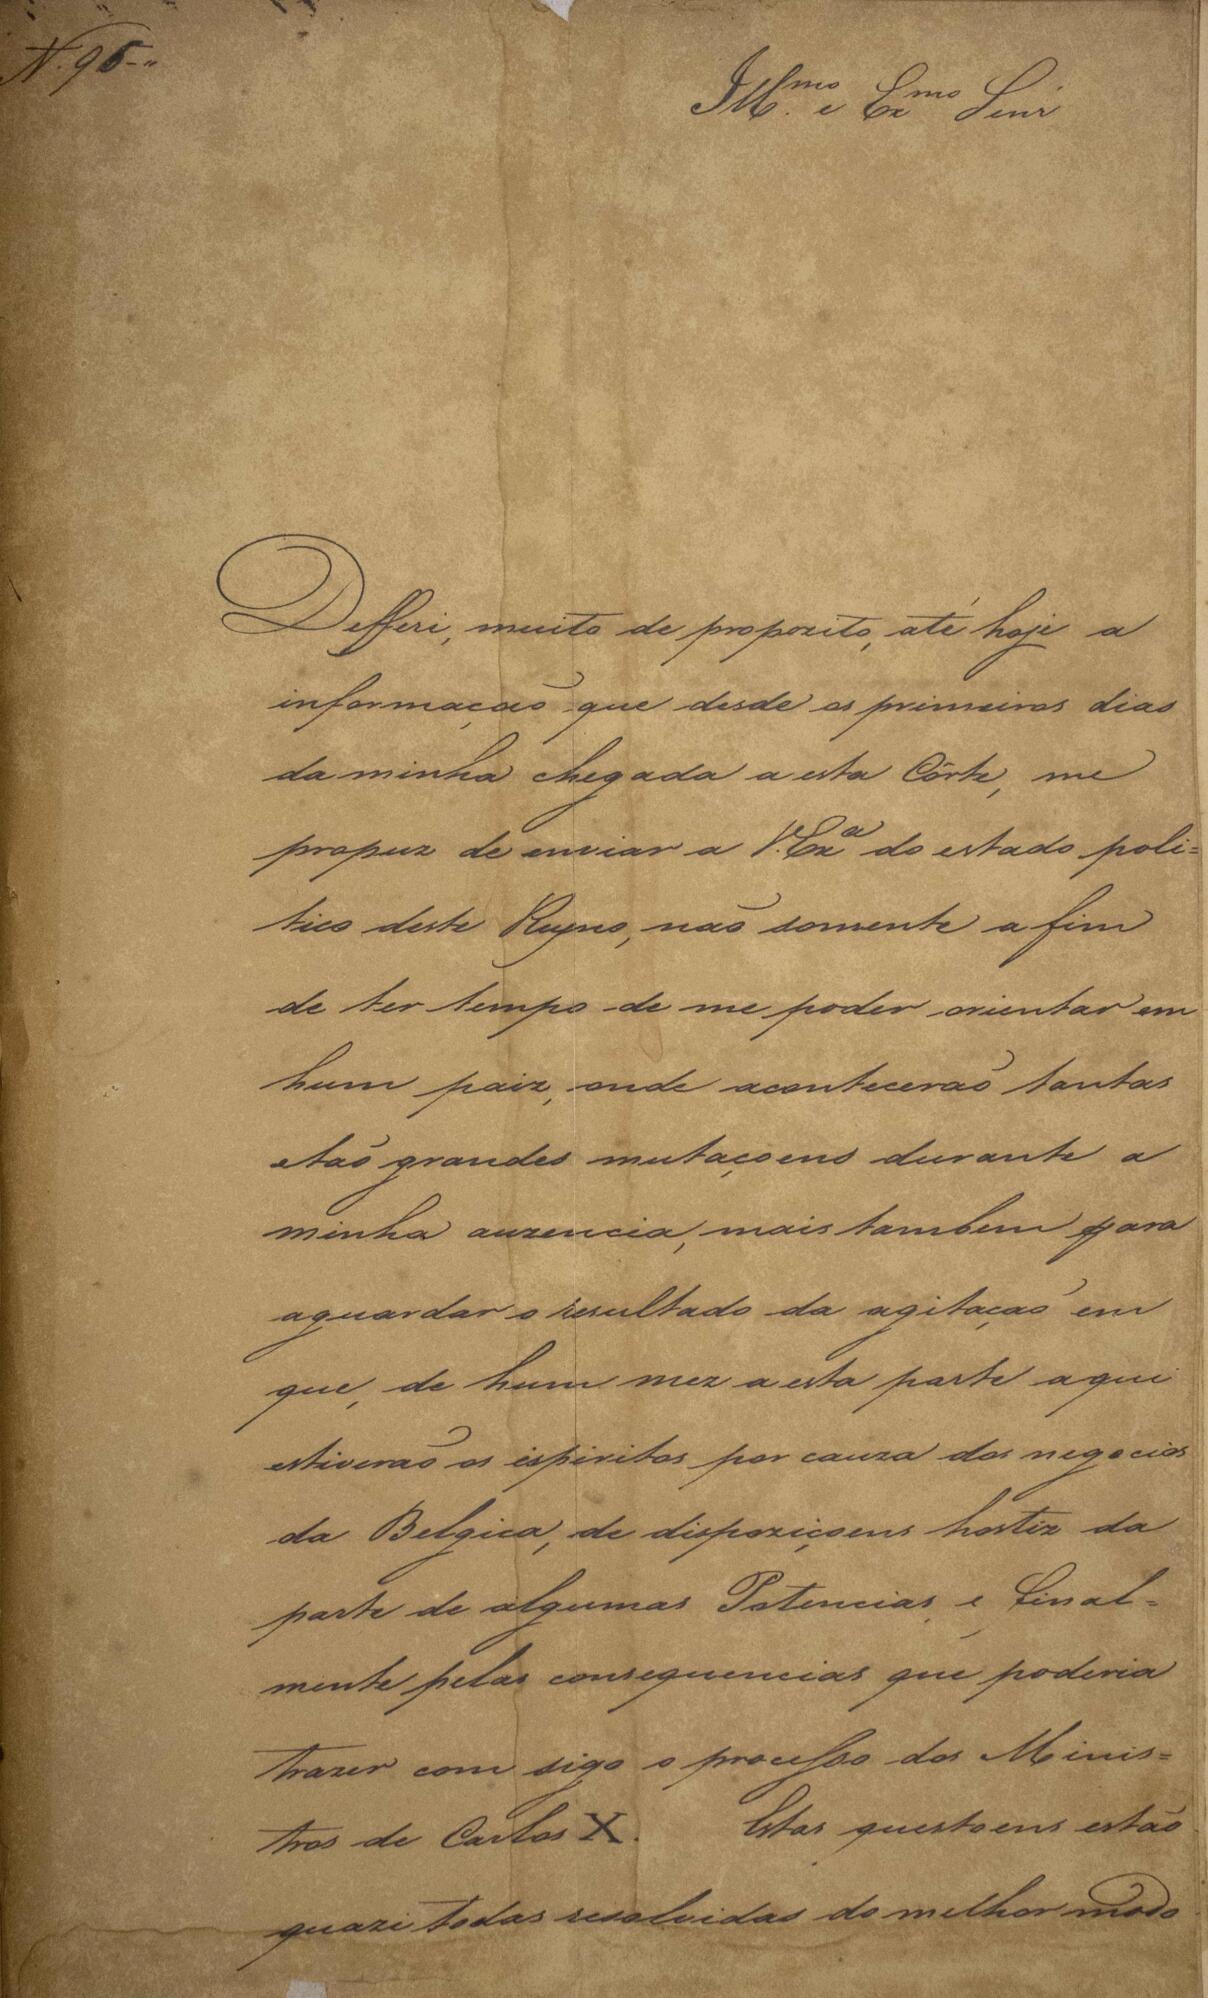 N. 96
Ill.mo e Ex.mo Senr
Defferi, muito de propozito, até hoje a
informação que desde os primeiros dias
da minha chegada a esta Côrte, me
propuz de enviar a V. Ex.a do estado poli=
tico deste Reyno, não somente a fim
de ter tempo de me poder orientar em
hum paiz, onde acontecerão tantas
e tão grandes mutaçoens durante a
minha auzencia, mais tambem para
aguardar o resultado da agitação em
que, de hum mez a esta parte aqui
estiverão os espiritos por cauza dos negocios
da Belgica, de dispoziçoens hostiz da
parte de algumas Potencias, e final=
mente pelas consequencias que poderia
trazer com sigo o processo dos Minis=
tros de Carlos X. Estas questoens estão
quazi todas resolvidas do melhor modo